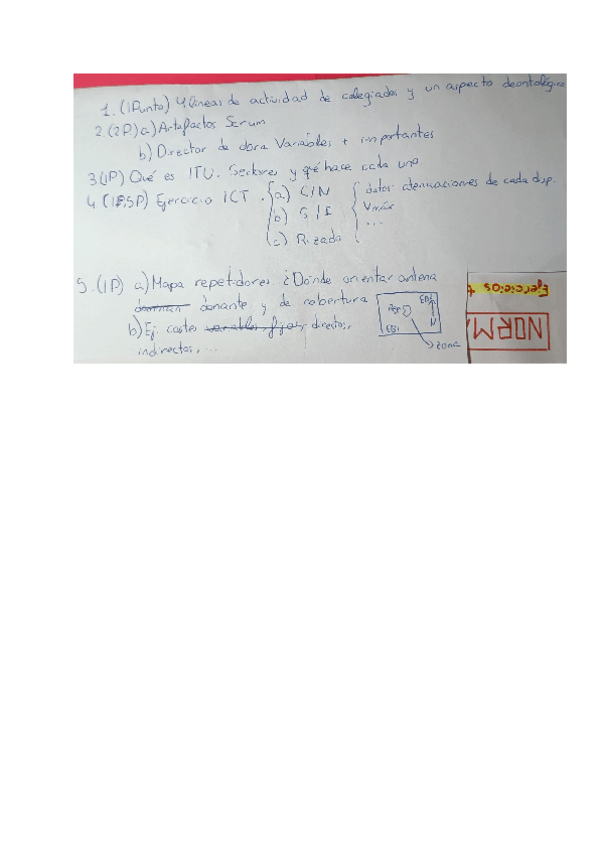 1. (1Punto) 4 líneas de actividad de colegiados y un aspecto deontológico
2. (2P) a) Artefactos Scrum
b) Director de obra Variables + importantes
3 (1P) Qué es ITU. Sectores y qué hace cada uno
4 Ejercicio ICT. a) C/N datos: atenuaciones de cada disp.
b) S/I Vmáx
c) Rizado ...
5. (1P) a) Mapa repetidores ¿Dónde orientar antena
donante y de cobertura
b) Ej. costes variables, fijos, directos,
indirectos, ...
EB1
N
zona
Ejercicios
NORM